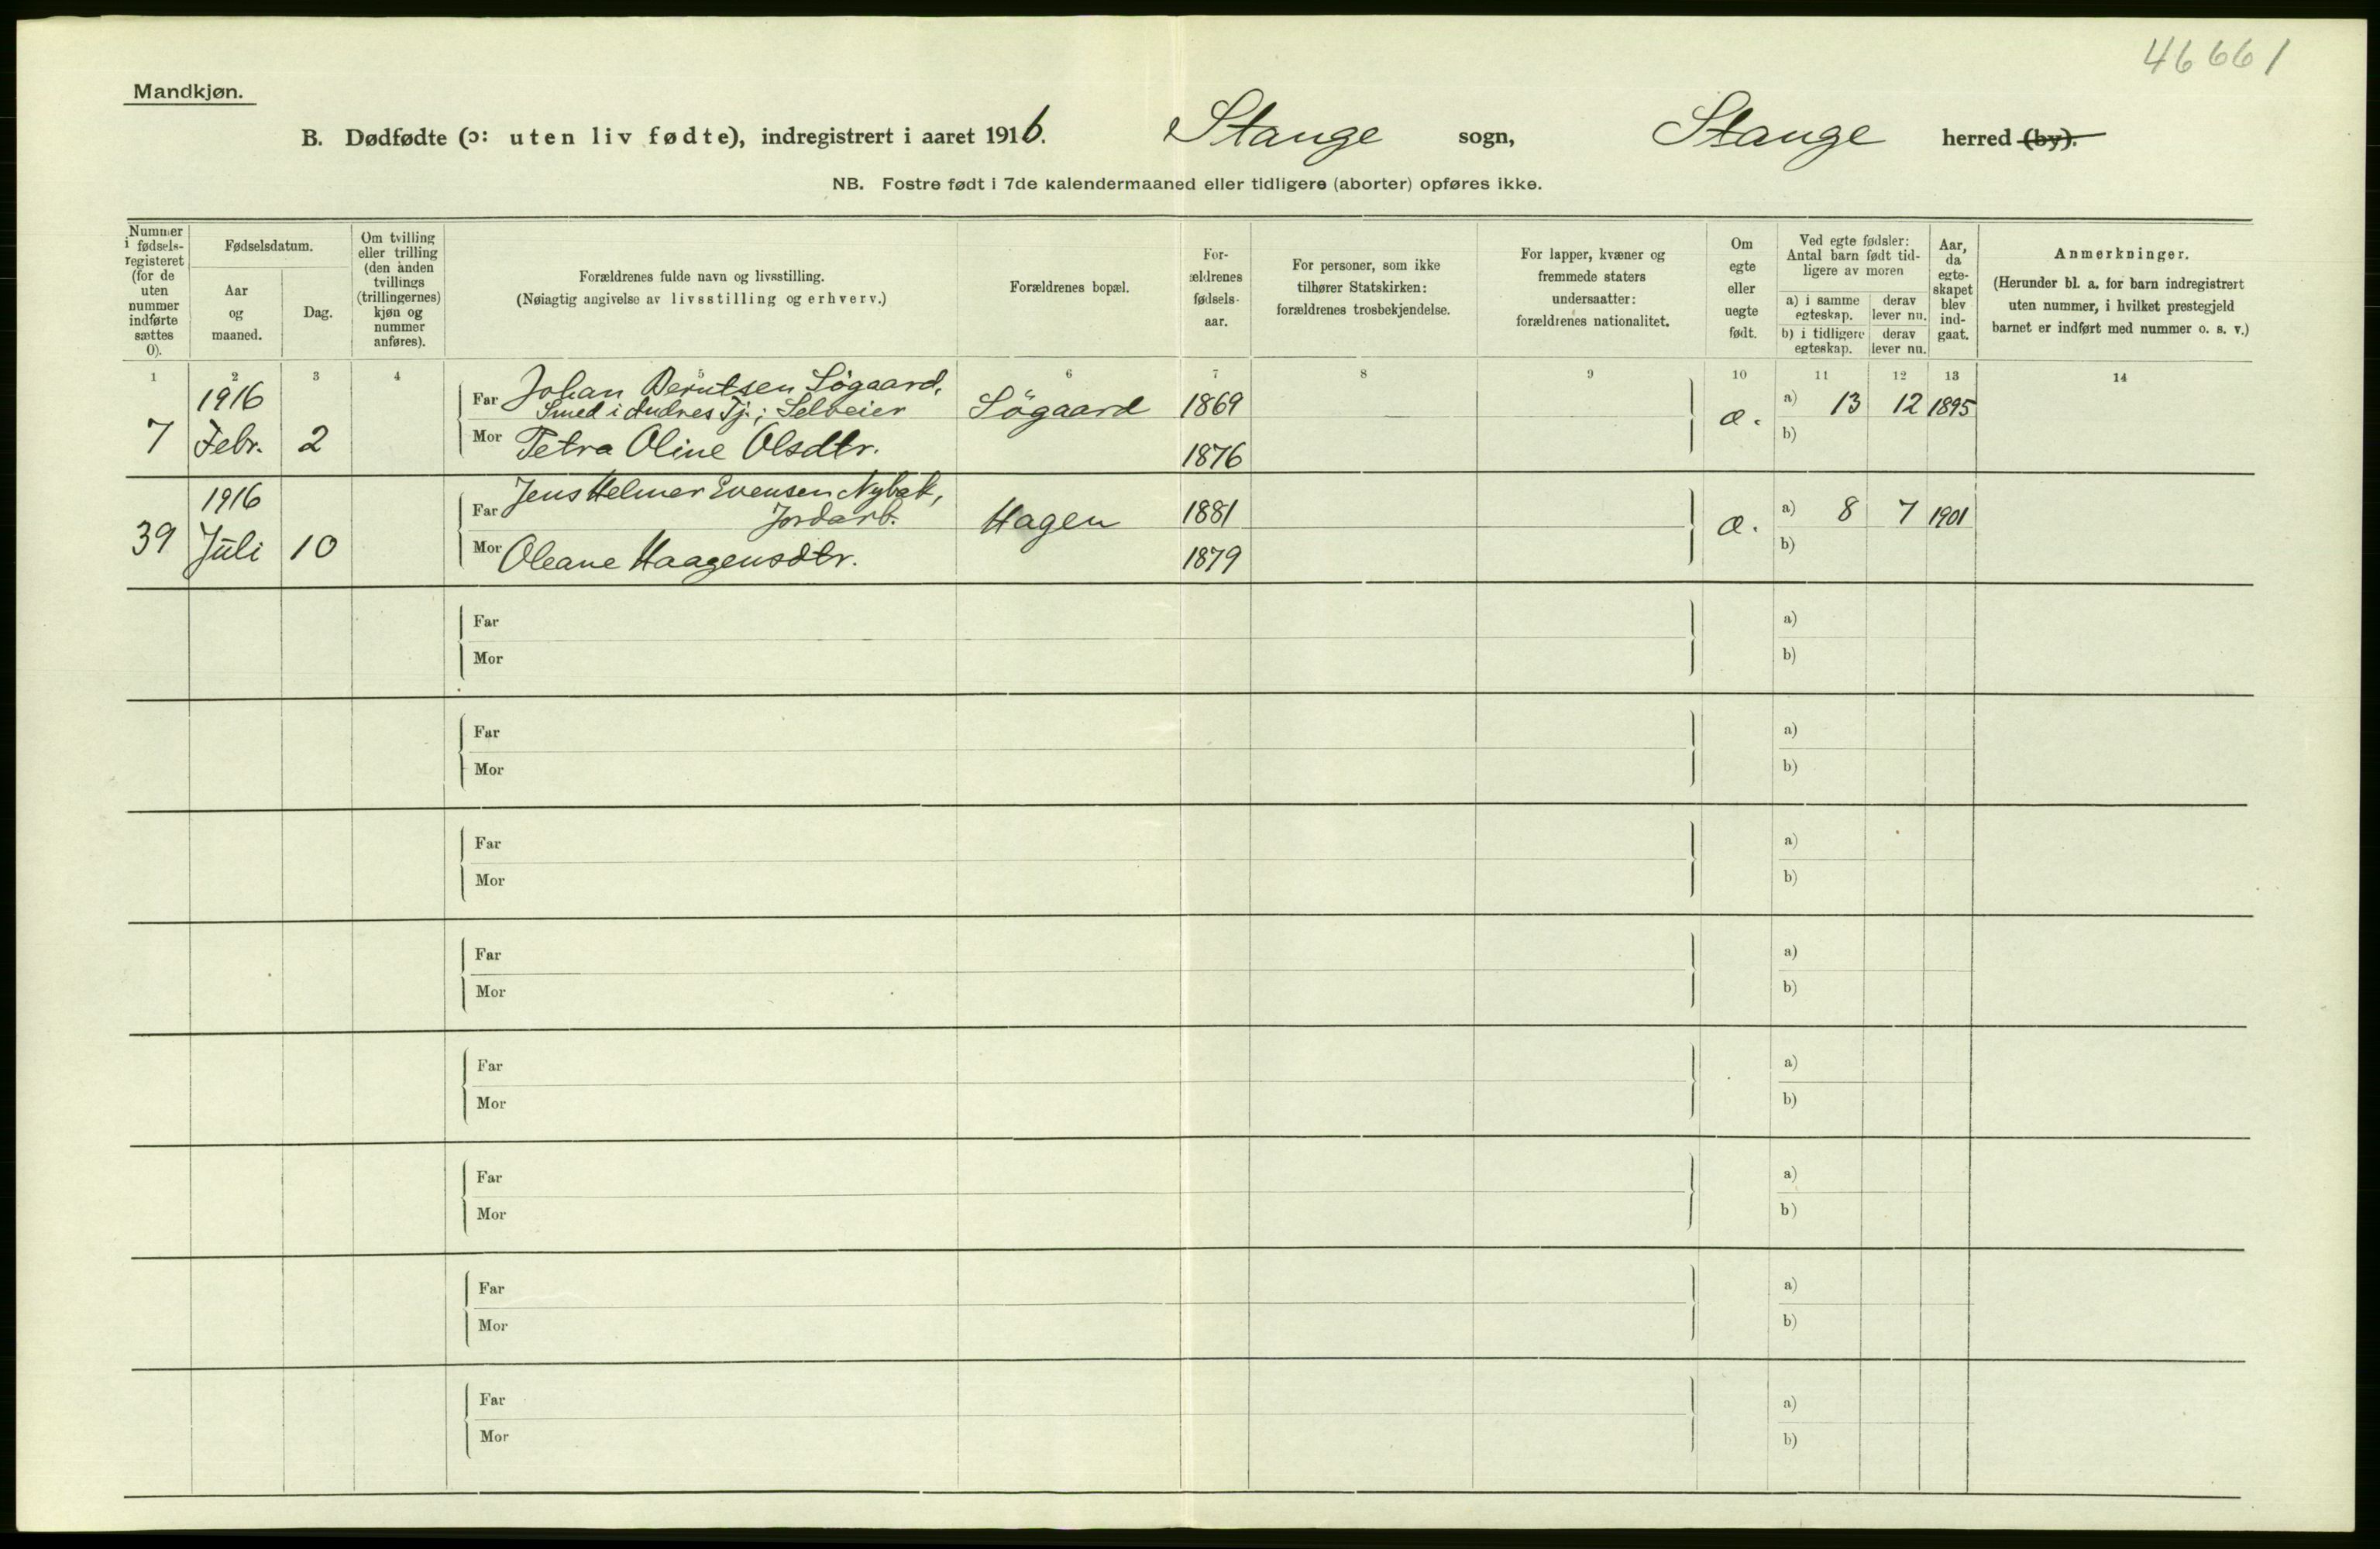 46661
Mandkjøn.
B. Dødfødte (ɔ: uten liv fødte), indregistrert i aaret 1916. Stange sogn, Stange herred (by).
NB. Fostre født i 7de kalendermaaned eller tidligere (aborter) opføres ikke.
Nummer i fødsels-registeret (for de uten nummer indførte sættes 0).
Fødselsdatum.
Aar og maaned.
Dag.
Om tvilling eller trilling (den anden tvillings (trillingernes) kjøn og nummer anføres).
Forældrenes fulde navn og livsstilling.
(Nøiagtig angivelse av livsstilling og erhverv.)
Forældrenes bopæl.
For-ældrenes fødsels-aar.
For personer, som ikke tilhører Statskirken: forældrenes trosbekjendelse.
For lapper, kvæner og fremmede staters undersaatter: forældrenes nationalitet.
Om egte eller uegte født.
Ved egte fødsler: Antal barn født tid-ligere av moren
a) i samme egteskap.
derav lever nu.
b) i tidligere egteskap.
derav lever nu.
Aar, da egte-skapet blev ind-gaat.
Anmerkninger.
(Herunder bl. a. for barn indregistrert uten nummer, i hvilket prestegjeld barnet er indført med nummer o. s. v.)
1 2 3 4 5 6 7 8 9 10 11 12 13 14
1916
Far Johan Berntsen Søgaard,
Smed i Andres Tj.; Selveier Søgaard 1869 a) 13 12 1895
7 Febr. 2 Mor Petra Oline Olsdtr. 1876 æ. b)
1916
Far Jens Helmer Evensen Nybak,
Jordarb. Hagen 1881 a) 8 7 1901
39 Juli 10 Mor Oleane Haagensdtr. 1879 æ. b)
Far a)
Mor b)
Far a)
Mor b)
Far a)
Mor b)
Far a)
Mor b)
Far a)
Mor b)
Far a)
Mor b)
Far a)
Mor b)
Far a)
Mor b)